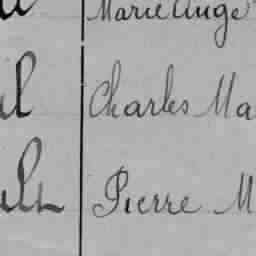 Marie Ange
Charles Ma
Pierre M